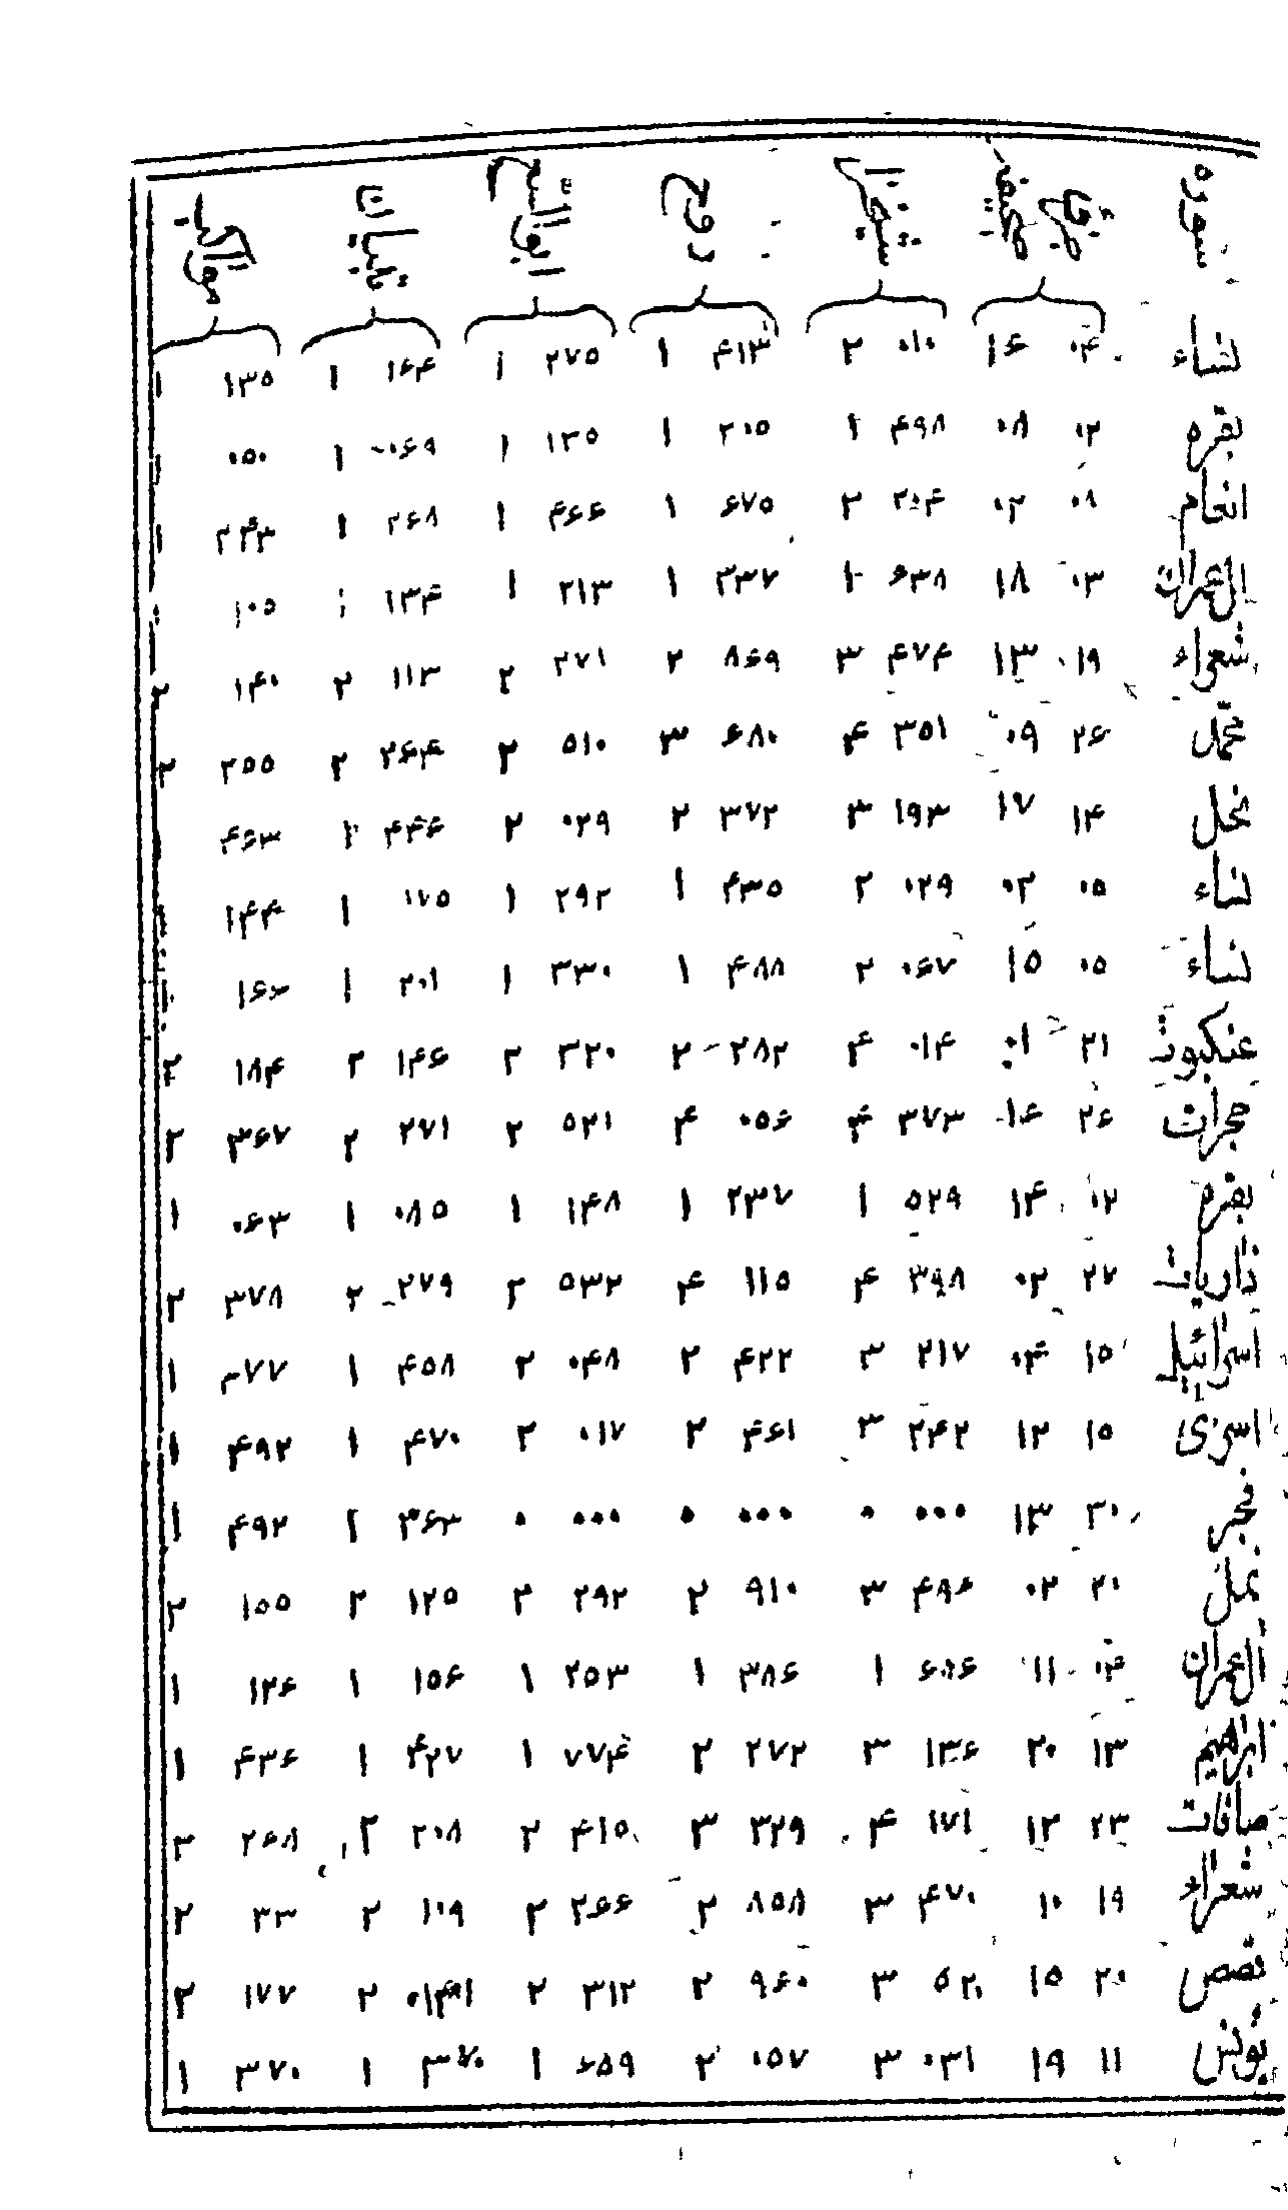 سوره صحيفه شيخزاده روح ابو السعود تبيان مواكب
نساء ۰۴ ۱۶ ۰۱۰ ۲ ۴۱۳ ۱ ۲۷۵ ۱ ۱۶۴ ۱ ۱۳۵ ۱
بقره ۰۲ ۰۸ ۴۹۸ ۱ ۲۰۵ ۱ ۱۳۵ ۱ ۰۶۹ ۱ ۰۵۰ ۱
انعام ۰۸ ۰۲ ۲۰۴ ۲ ۶۷۵ ۱ ۴۶۶ ۱ ۲۶۸ ۱ ۲۴۳ ۱
ال عمران ۰۳ ۱۸ ۶۳۸ ۱ ۳۳۷ ۱ ۲۱۳ ۱ ۱۳۴ ۱ ۱۰۵
شعراء ۱۹ ۱۳ ۴۷۴ ۳ ۸۶۹ ۲ ۲۷۱ ۲ ۱۱۳ ۲ ۱۴۰ ۲
محمد ۲۶ ۰۹ ۳۵۱ ۴ ۶۸۰ ۳ ۵۱۰ ۲ ۲۶۴ ۲ ۲۵۵ ۲
نحل ۱۴ ۱۷ ۱۹۳ ۳ ۳۷۲ ۲ ۰۲۹ ۲ ۴۴۶ ۱ ۴۶۳
نساء ۰۵ ۰۲ ۰۲۹ ۲ ۴۳۵ ۱ ۲۹۲ ۱ ۱۷۵ ۱ ۱۴۴
نساء ۰۵ ۱۵ ۰۶۷ ۲ ۴۸۸ ۱ ۳۳۰ ۱ ۲۰۱ ۱ ۱۶۶
عنكبوت ۲۱ ۰۱ ۰۱۴ ۴ ۲۸۲ ۲ ۳۲۰ ۲ ۱۴۶ ۲ ۱۸۴ ۲
حجرات ۲۶ ۱۶ ۳۷۳ ۴ ۰۵۶ ۴ ۵۲۱ ۲ ۲۷۱ ۲ ۳۶۷ ۲
بقره ۰۲ ۱۴ ۵۲۹ ۱ ۲۳۷ ۱ ۱۴۸ ۱ ۰۸۵ ۱ ۰۶۳ ۱
ذاريات ۲۷ ۰۲ ۳۹۸ ۴ ۱۱۵ ۴ ۵۳۲ ۲ ۲۷۹ ۲ ۳۷۸ ۲
اسرائيل ۱۵ ۰۴ ۲۱۷ ۳ ۴۲۲ ۲ ۰۴۸ ۲ ۴۵۸ ۱ ۴۷۷ ۱
اسرى ۱۵ ۱۲ ۲۴۲ ۳ ۴۶۱ ۲ ۰۱۷ ۲ ۴۷۰ ۱ ۴۹۲ ۱
فجر ۳۰ ۱۳ ۰۰۰ ۰ ۰۰۰ ۰ ۰۰۰ ۰ ۳۶۳ ۲ ۴۹۲ ۱
نمل ۲۰ ۰۲ ۴۹۶ ۳ ۹۱۰ ۲ ۲۹۲ ۲ ۱۲۵ ۲ ۱۵۵ ۲
ال عمران ۰۴ ۱۱ ۶۸۶ ۱ ۳۸۶ ۱ ۲۵۳ ۱ ۱۵۶ ۱ ۱۲۶ ۱
ابراهيم ۱۳ ۲۰ ۱۳۶ ۳ ۲۷۲ ۲ ۷۷۴ ۱ ۴۲۷ ۱ ۴۳۶ ۱
صافات ۲۳ ۱۲ ۱۷۱ ۴ ۳۲۹ ۳ ۴۱۵ ۲ ۲۰۸ ۲ ۲۶۸ ۲
شعراء ۱۹ ۱۰ ۴۷۰ ۳ ۸۵۸ ۲ ۲۶۶ ۲ ۱۰۹ ۲ ۳۳ ۲
قصص ۲۰ ۱۵ ۵۲ ۳ ۹۶۰ ۲ ۳۱۲ ۲ ۲ ۱۷۷ ۲
يونس ۱۱ ۱۹ ۰۳۱ ۳ ۰۵۷ ۲ ۶۵۹ ۱ ۳۷۰ ۱ ۳۷۰ ۱